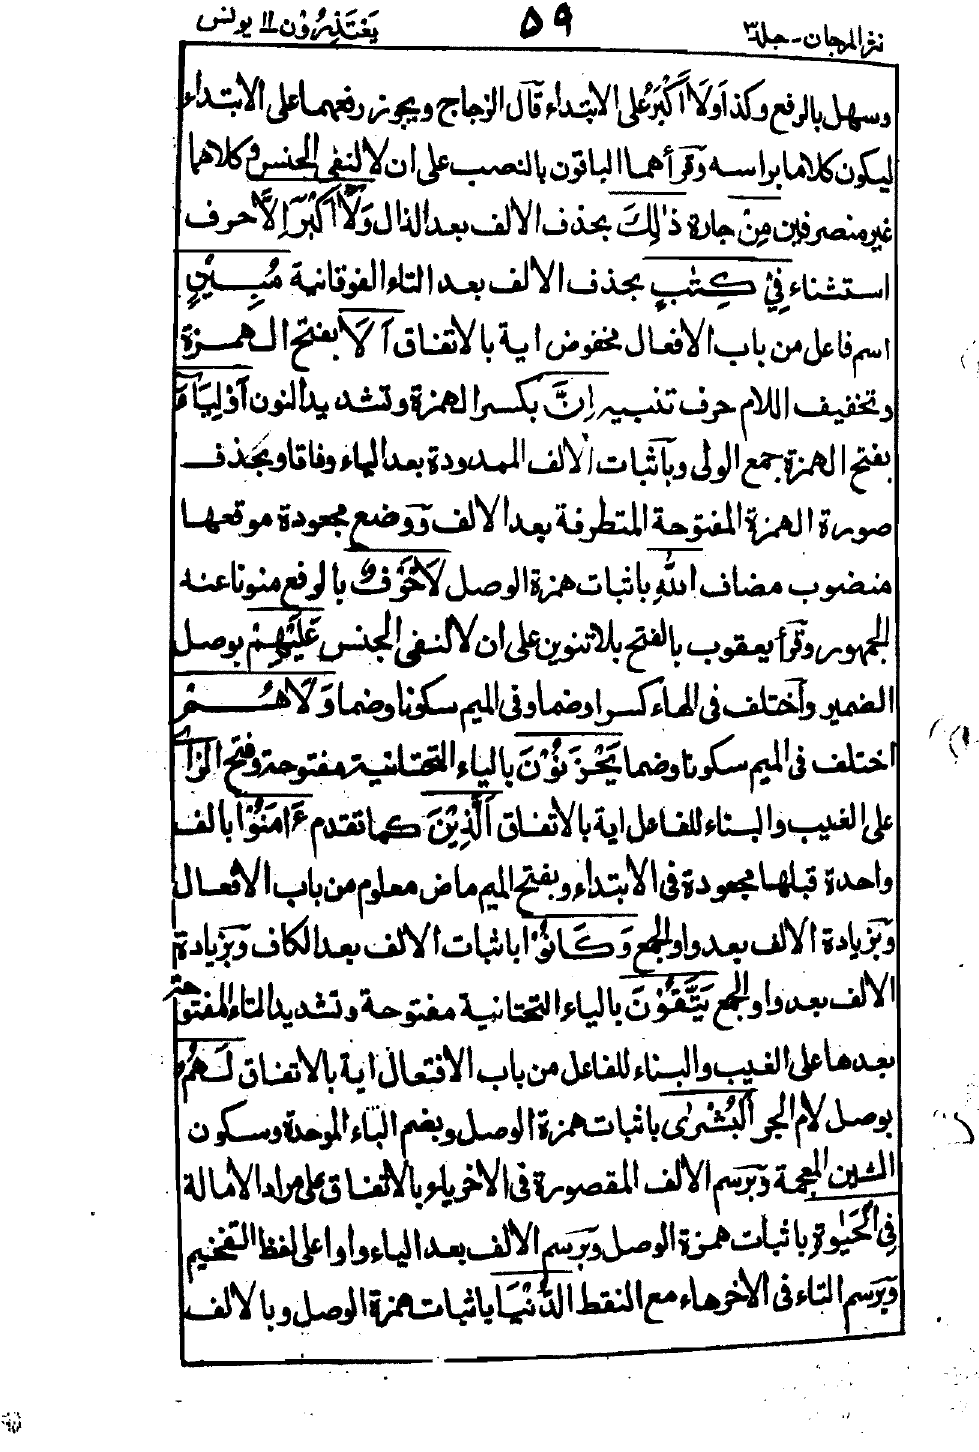 نثر المرجان - جلد ٣
٥٩
يَعْتَذِرُوْن ١١ يونس
وسهل بالرفع وكذا وَلَا أَكْبَرُ على الابتداء قال الزجاج ويجوز رفعهما على الابتداء
ليكون كلاما براسه وقرأهما الباقون بالنصب على ان لا لنفى الجنس وكلاهما
غير منصرفين مِنْ جارة ذٰلِكَ بحذف الالف بعد الذال وَلَا أَكْبَرَ اِلَّا حرف
استثناء فِيْ كِتٰبٍ بحذف الالف بعد التاء الفوقانية مُبِيْنٍ
اسم فاعل من باب الافعال مخفوض اية بالاتفاق اَلَا بفتح الهمزة
وتخفيف اللام حرف تنبيه اِنَّ بكسر الهمزة وتشديد النون اَوْلِيَآءَ
بفتح الهمزة جمع الولى وباثبات الالف الممدودة بعد الياء وفاقا وبحذف
صورة الهمزة المفتوحة المتطرفة بعد الالف ووضع مجعودة موقعها
منصوب مضاف اللّٰهِ باثبات همزة الوصل لَاخَوْفٌ بالرفع منونا عند
الجمهور وقرأ يعقوب بالفتح بلا تنوين على ان لا لنفى الجنس عَلَيْهِمْ بوصل
الضمير واختلف فى الهاء كسرا وضما وفى الميم سكونا وضما وَلَا هُمْ
اختلف فى الميم سكونا وضما يَحْزَنُوْنَ بالياء التحتانية مفتوحة وفتح الزاى
على الغيب والبناء للفاعل اية بالاتفاق اَلَّذِيْنَ كما تقدم ءَامَنُوْا بالف
واحدة قبلها مجعودة فى الابتداء وبفتح الميم ماض معلوم من باب الافعال
وبزيادة الالف بعد واو الجمع وَكَانُوْا باثبات الالف بعد الكاف وبزيادة
الالف بعد واو الجمع يَتَّقُوْنَ بالياء التحتانية مفتوحة وتشديد التاء المفتوحة
بعدها على الغيب والبناء للفاعل من باب الافتعال اية بالاتفاق لَهُمُ
بوصل لام الجر اَلْبُشْرٰى باثبات همزة الوصل وبضم الباء الموحدة وسكون
الشين المعجمة وبرسم الالف المقصورة فى الاخر ياء بالاتفاق على مراد الامالة
فِى الْحَيٰوةِ باثبات همزة الوصل وبرسم الالف بعد الياء واوا على لفظ التفخيم
وبرسم التاء فى الاخر هاء مع النقط الدُّنْيَا باثبات همزة الوصل وبالالف